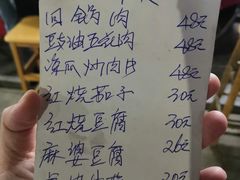 回锅肉 48元
豉油五花肉 48元
凉瓜炒肉片 48元
红烧茄子 30元
红烧豆腐 30元
麻婆豆腐 26元